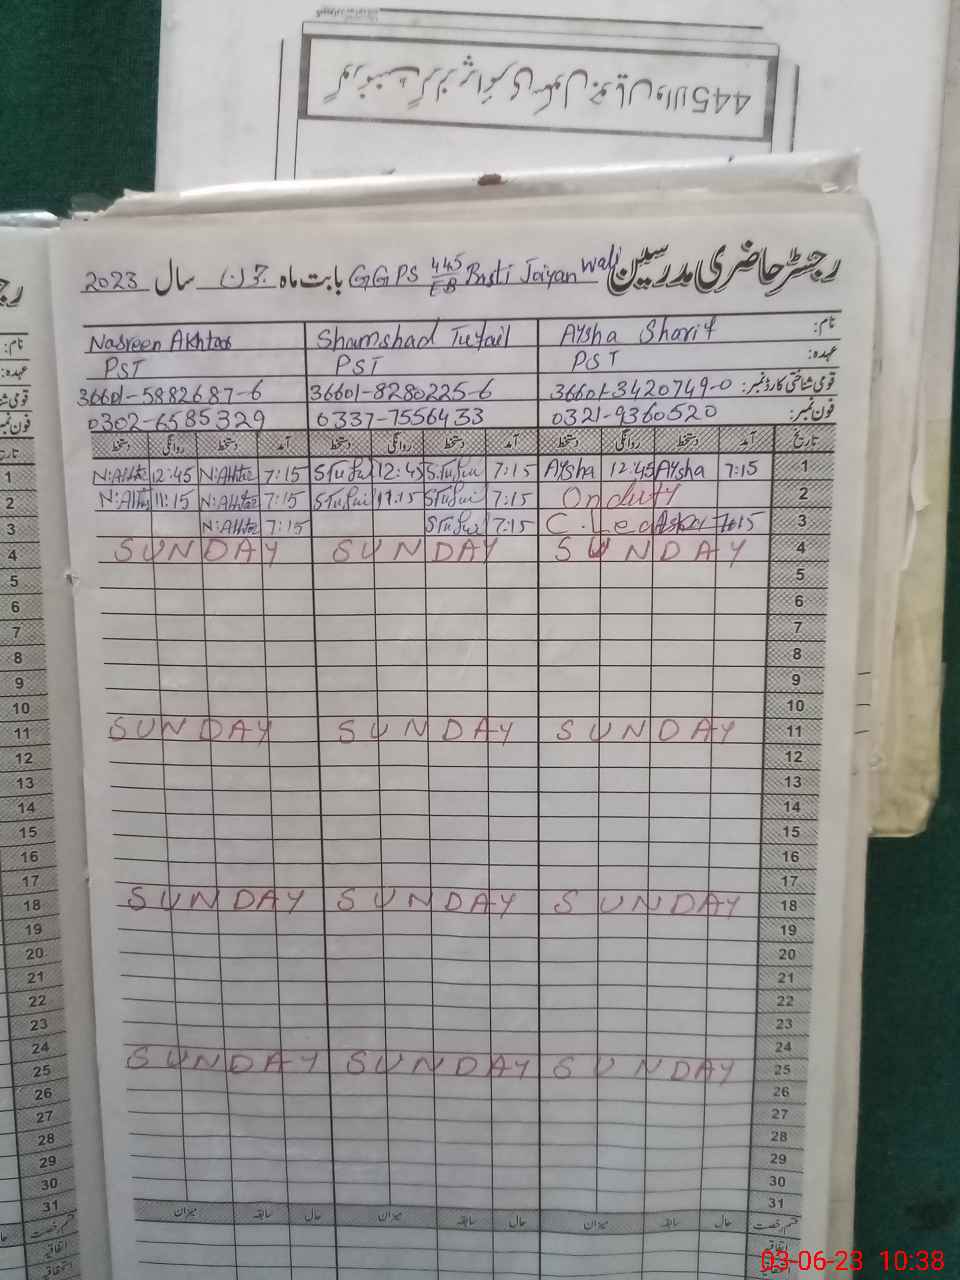 گورنمنٹ گرلز پرائمری سکول بستی جوئیاں والا 445
رجسٹر حاضری مدرسین GGPS 445/EB Basti Joiyan Wali بابت ماہ جون سال 2023
نام: Aysha Sharif Shamshad Tufail Nasreen Akhtar
عہدہ: PST PST PST
قومی شناختی کارڈ نمبر: 36601-3420749-0 36601-8280225-6 36601-5882687-6
فون نمبر: 0321-9360520 0337-7556433 0302-6585329
تاریخ آمد دستخط روانگی دستخط آمد دستخط روانگی دستخط آمد دستخط روانگی دستخط
1 7:15 Aysha 12:45 Aysha 7:15 12:45 7:15 N:Akhtar 12:45 N:Akhtar
2 Onduty 7:15 11:15 7:15 N:Akhtar 11:15 N:Akhtar
3 C.Leave 7:15 7:15 7:15 N:Akhtar
4 SUNDAY SUNDAY SUNDAY
5
6
7
8
9
10
11 SUNDAY SUNDAY SUNDAY
12
13
14
15
16
17
18 SUNDAY SUNDAY SUNDAY
19
20
21
22
23
24
25 SUNDAY SUNDAY SUNDAY
26
27
28
29
30
31
قسم رخصت حال سابقہ میزان حال سابقہ میزان حال سابقہ میزان
اتفاقیہ
استحقاقیہ
03-06-23 10:38